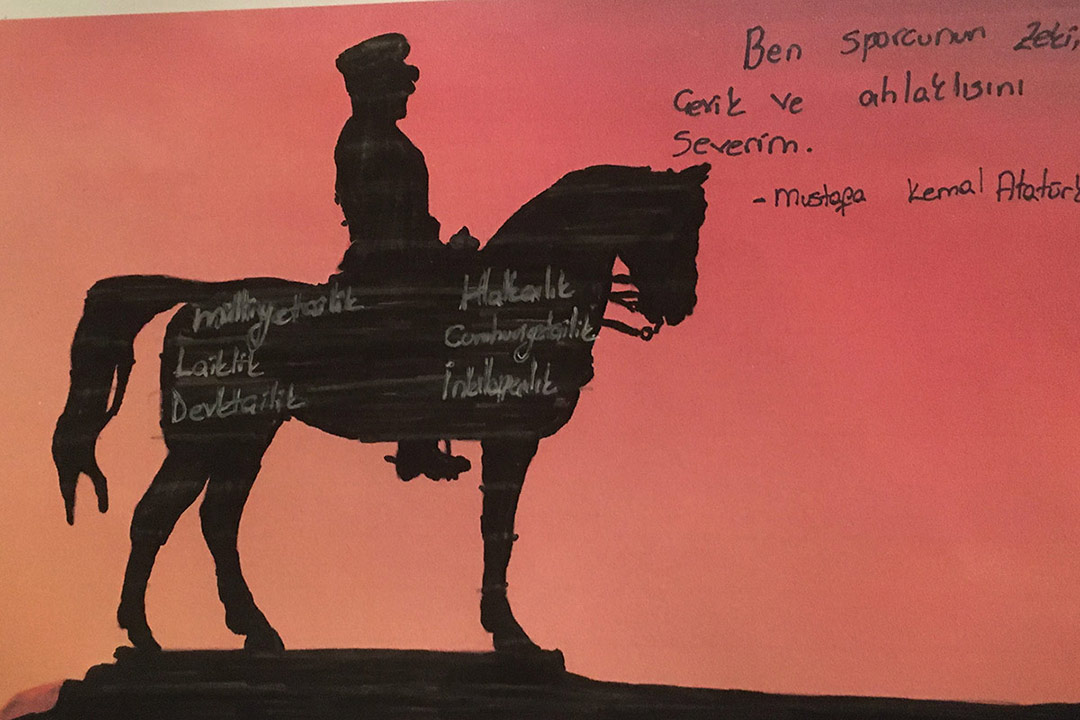 Ben sporcunun zeki,
Çevik ve ahlaklısını
Severim.
-Mustafa Kemal Atatürk
Milliyetçilik
Laiklik
Devletçilik
Halkçılık
Cumhuriyetçilik
İnkılapçılık